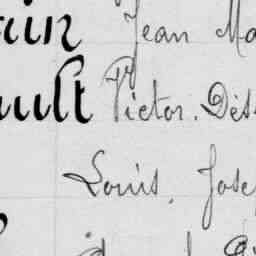 ain Jean Ma
ault Victor. Dés
Louis, Jose